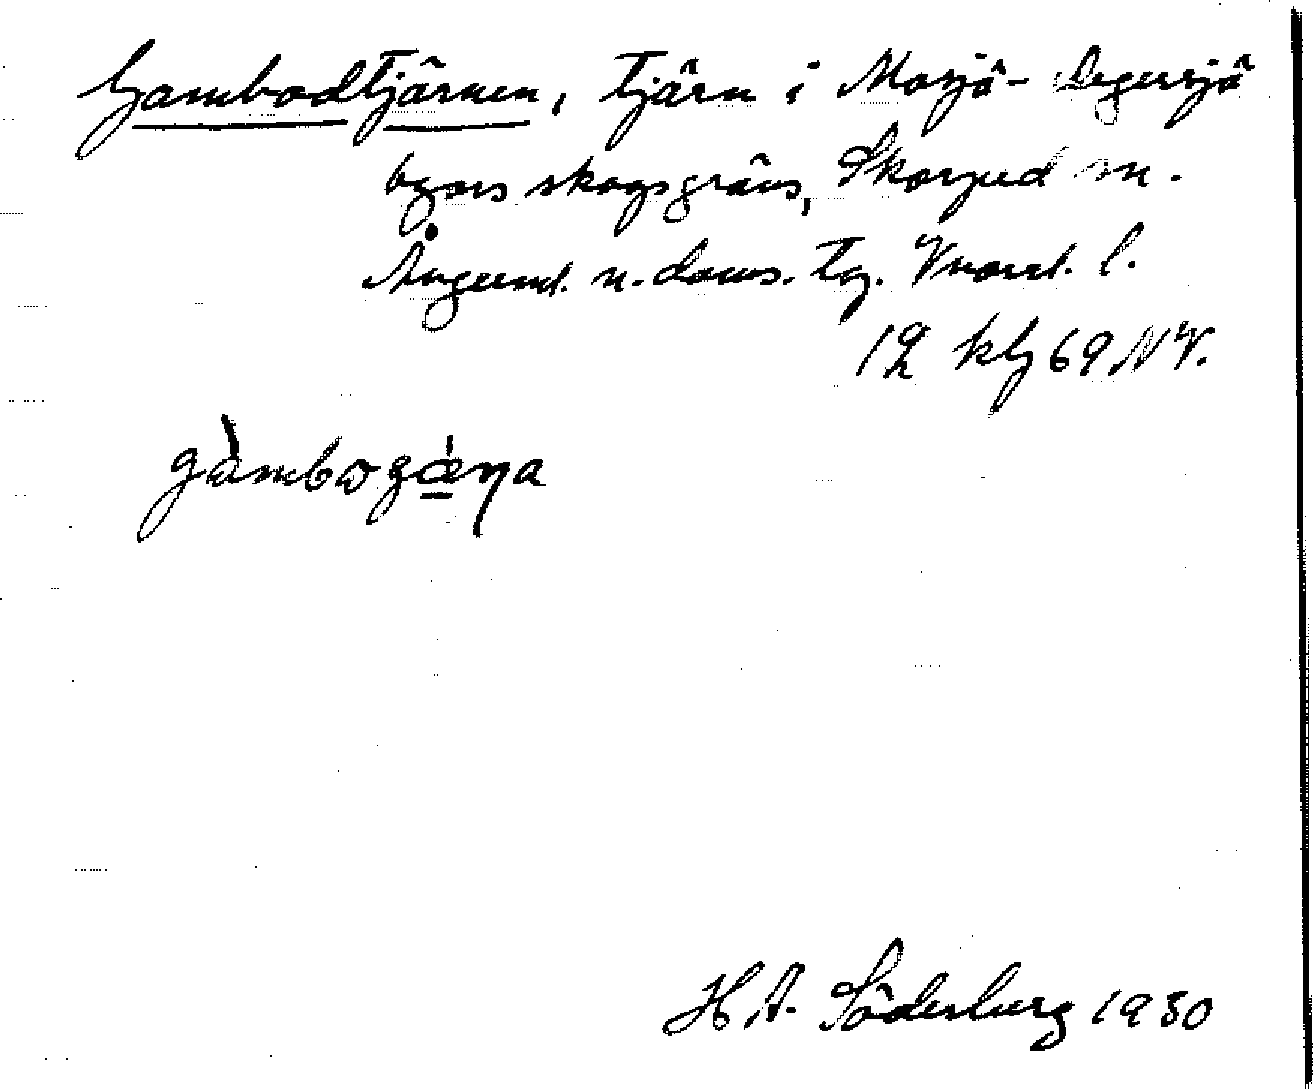 Gambodtjärnen, tjärn i Mosjö- Degersjö
byars skogsgräns, Skorped sn.
Ångerml. n. doms. tg. Vnorrl. l.
12 kbl 69 NV.
gàmbogæ̀ɳa
H A. Söderberg 1930